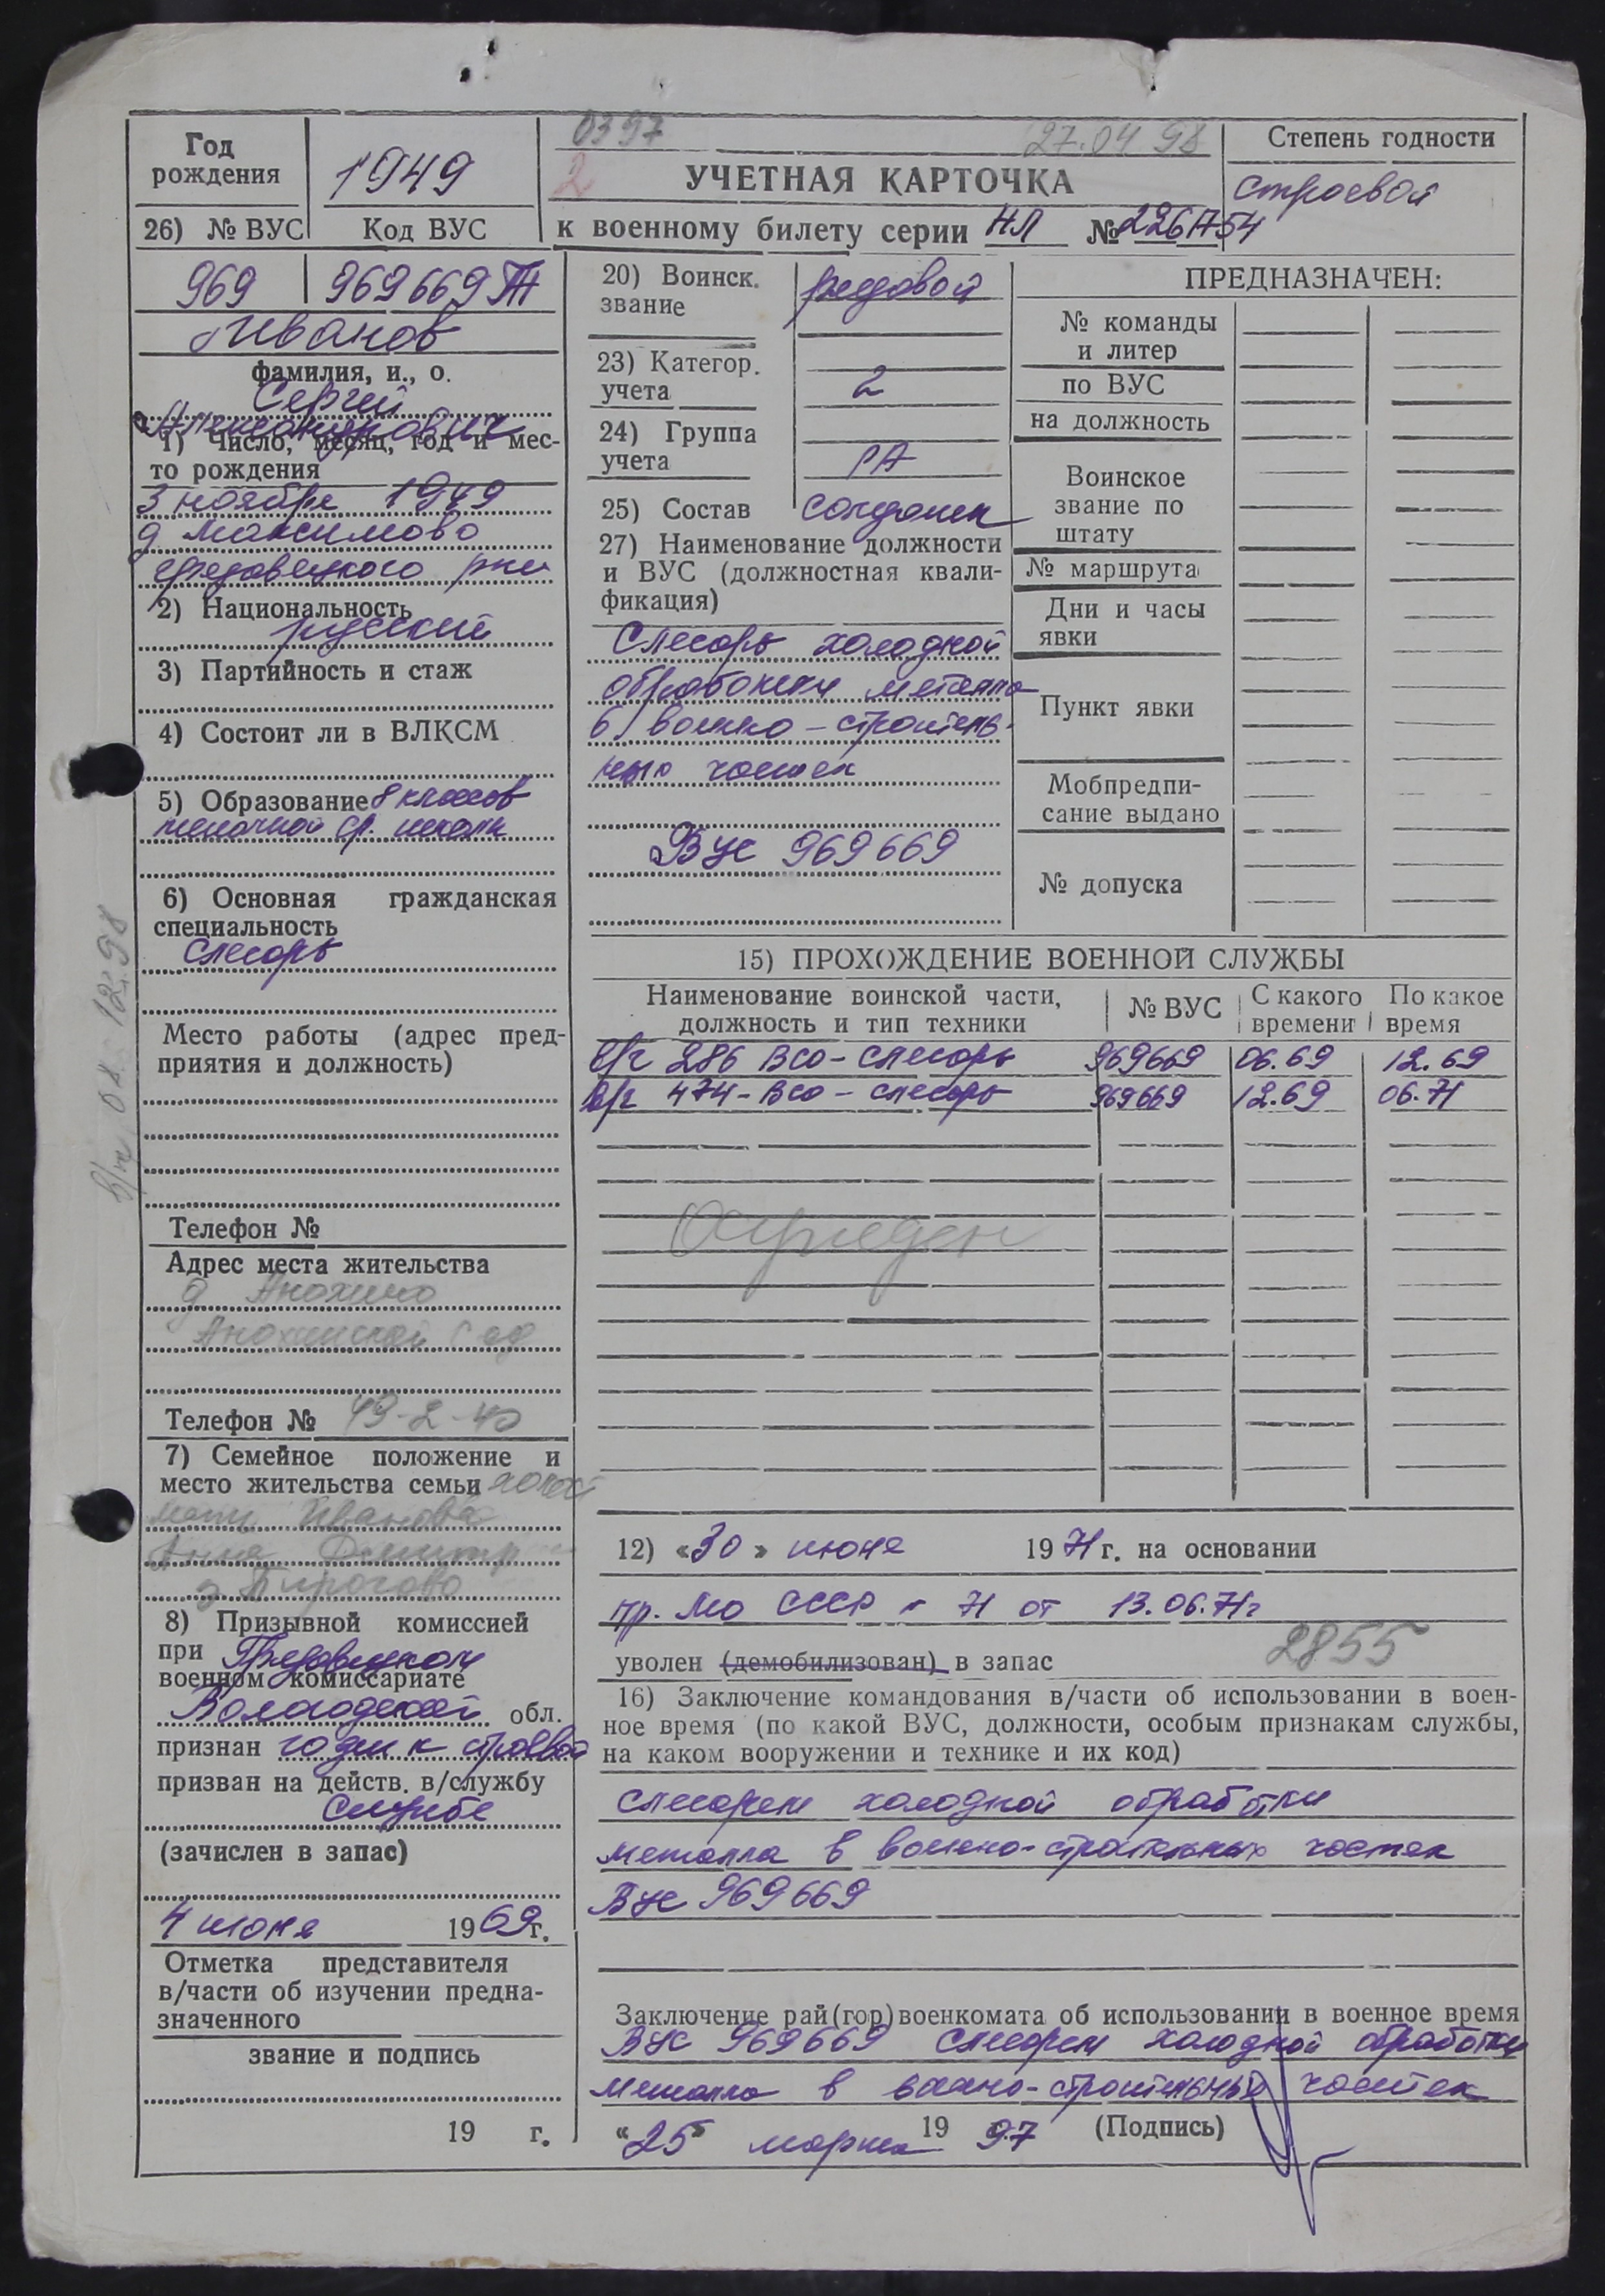 Год
рождения
1949
0397
27.04 98
2
УЧЕТНАЯ КАРТОЧКА
Степень годности
строевой
26) № ВУС
Код ВУС
к военному билету серии НЛ № 2261754
969
969669
Иванов
фамилия, и., о.
Сергей
Александрович
1) Число, месяц, год и мес-
то рождения
3 ноября 1949
д Максимово
Грязовецкого р-на
2) Национальность
русский
3) Партийность и стаж
4) Состоит ли в ВЛКСМ
5) Образование 8 классов
ср. школы
6) Основная гражданская
специальность
слесарь
Место работы (адрес пред-
приятия и должность)
Телефон №
Адрес места жительства
д Анохино
Анохинский с
Телефон № 49-2-40
7) Семейное положение и
место жительства семьи холост
мать Иванова
Анна Дмитр
д Пирогово
8) Призывной комиссией
при Грязовецком
военном комиссариате
Вологодской обл.
признан годен к строевой
призван на действ. в/службу
службе
(зачислен в запас)
4 июня 1969г.
Отметка представителя
в/части об изучении предна-
значенного
звание и подпись
19 г.
20) Воинск.
звание
рядовой
23) Категор.
учета
2
24) Группа
учета
РА
25) Состав
солдат
27) Наименование должности
и ВУС (должностная квали-
фикация)
Слесарь холодной
обработки металла
в военно-строитель-
ных частях
ВУС 969669
ПРЕДНАЗНАЧЕН:
№ команды
и литер
по ВУС
на должность
Воинское
звание по
штату
№ маршрута
Дни и часы
явки
Пункт явки
Мобпредпи-
сание выдано
№ допуска
15) ПРОХОЖДЕНИЕ ВОЕННОЙ СЛУЖБЫ
Наименование воинской части,
должность и тип техники
№ ВУС
С какого
времени
По какое
время
в/ч 286 ВСО - слесарь 969669 06.69 12.69
в/ч 474 - ВСО - слесарь 969669 12.69 06.71
Осужден
12) «30» июня 1971г. на основании
пр. МО СССР № 71 от 13.06.71г
уволен (демобилизован) в запас
2855
16) Заключение командования в/части об использовании в воен-
ное время (по какой ВУС, должности, особым признакам службы,
на каком вооружении и технике и их код)
слесарем холодной обработки
металла в военно-строительных частях
ВУС 969669
Заключение рай(гор)военкомата об использовании в военное время
ВУС 969669 слесарем холодной обработки
металла в военно-строительных частях
«25» марта 1997 (Подпись)
08.12.98